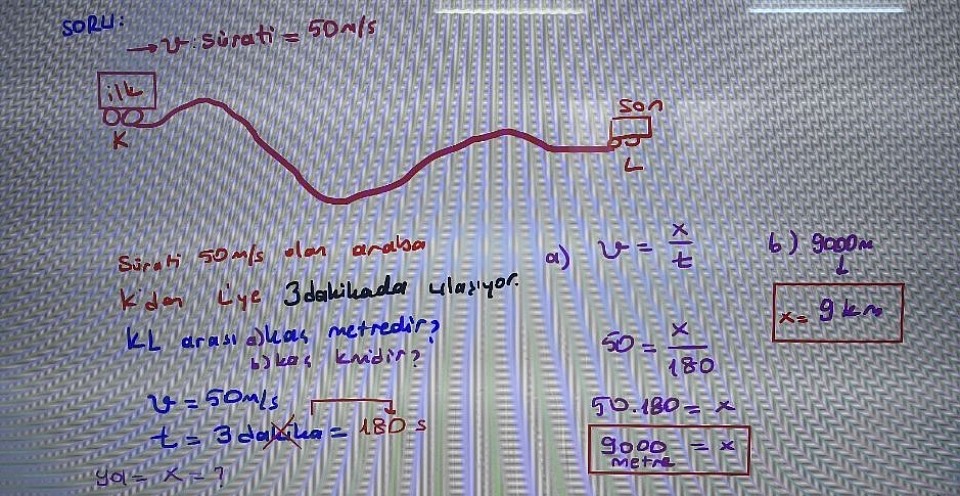 SORU:
→ v: Sürati = 50 m/s
ilk
K
Son
L
Sürati 50 m/s olan araba
K'dan L'ye 3 dakikada ulaşıyor.
KL arası a) kaç metredir?
b) kaç kmidir?
v = 50 m/s
t = 3 dakika = 180 s
yol = x = ?
a) v = x/t
50 = x/180
50.180 = x
9000 metre = x
b) 9000m
↓
x = 9 km